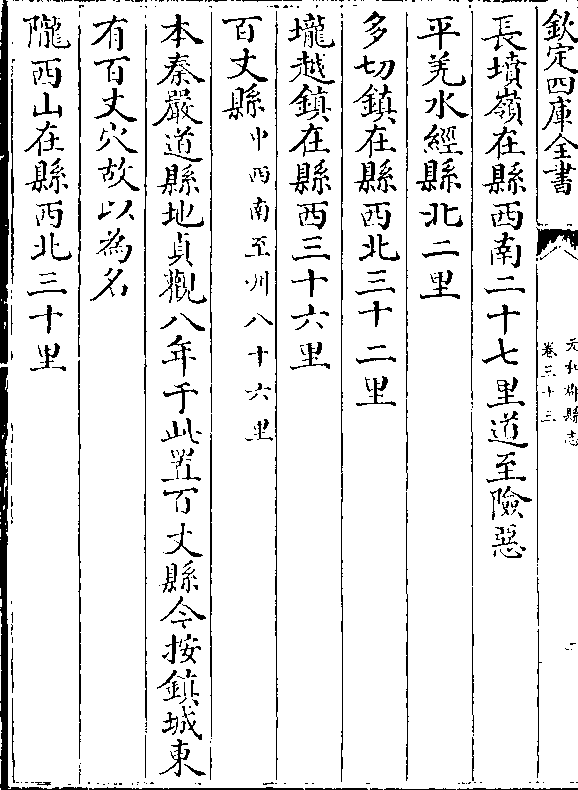 欽定四庫全書
元和郡縣志
卷三十三
長墳嶺在縣西南二十七里道至險惡
平羌水經縣北二里
多切鎮在縣西北三十二里
壠越鎮在縣西三十六里
百丈縣中西南至州八十六里
本秦嚴道縣地貞觀八年于此置百丈縣今按鎮城東
有百丈穴故以為名
隴西山在縣西北三十里